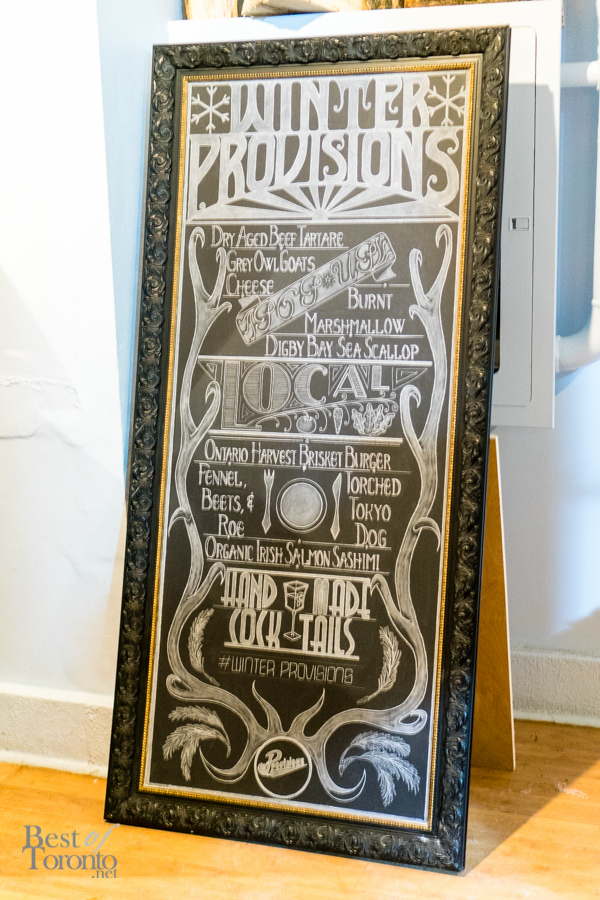 WINTER
PROVISIONS
DRY AGED BEEF TARTARE
GREY OWL GOATS
CHEESE
POP UP
BURNT
MARSHMALLOW
DIGBY BAY SEA SCALLOP
LOCAL
ONTARIO HARVEST BRISKET BURGER
FENNEL,
BEETS, &
ROE
TORCHED
TOKYO
DOG
ORGANIC IRISH SALMON SASHIMI
HAND MADE
COCK TAILS
#WINTER PROVISIONS
Best of
Toronto
.net